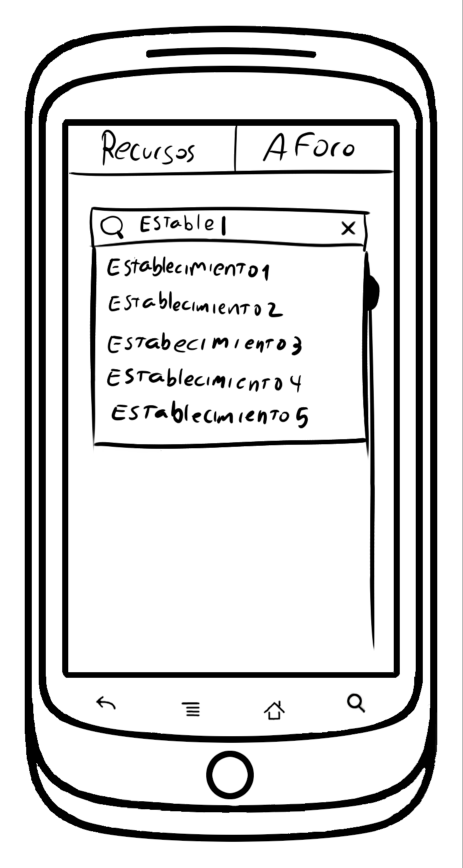 Recursos
Aforo
Estable
Establecimiento1
Establecimiento2
Estabecimiento3
Establecimiento4
Establecimiento5